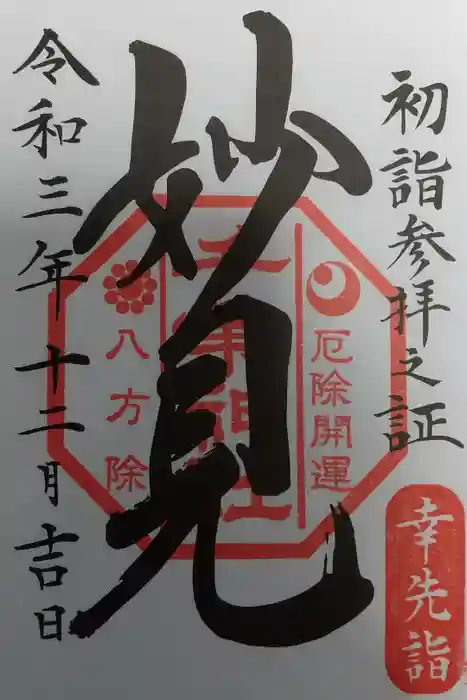 初詣参拝之証
幸先詣
厄除開運
妙見
八方除
令和三年十二月吉日